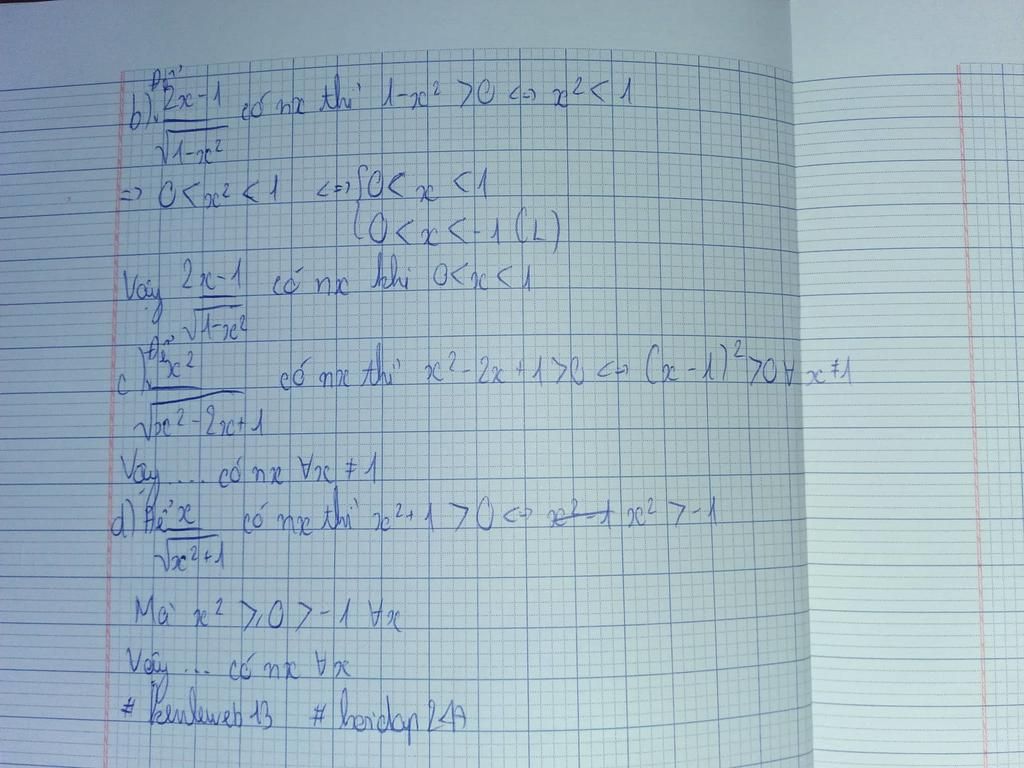 b) Để (2x-1)/√(1-x²) có nx thì 1-x² > 0 <=> x² < 1
=> 0 < x² < 1 <=> { 0 < x < 1
0 < x < -1 (L)
Vậy (2x-1)/√(1-x²) có nx khi 0 < x < 1
c) Để x²/√(x²-2x+1) có nx thì x²-2x+1 > 0 <=> (x-1)² > 0 ∀ x ≠ 1
Vậy ... có nx ∀x ≠ 1
d) Để x/√(x²+1) có nx thì x²+1 > 0 <=> x² > -1
Mà x² ≥ 0 > -1 ∀x
Vậy ... có nx ∀x